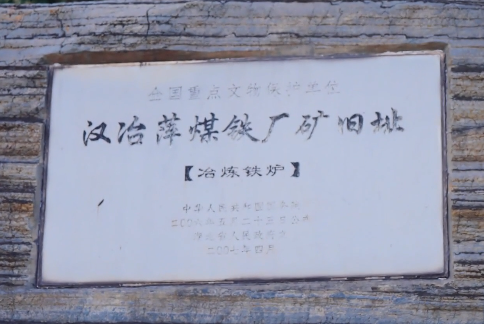 全国重点文物保护单位
汉冶萍煤铁厂矿旧址
【冶炼铁炉】
中华人民共和国国务院
二00六年五月二十五日公布
人民政府
二00七年四月